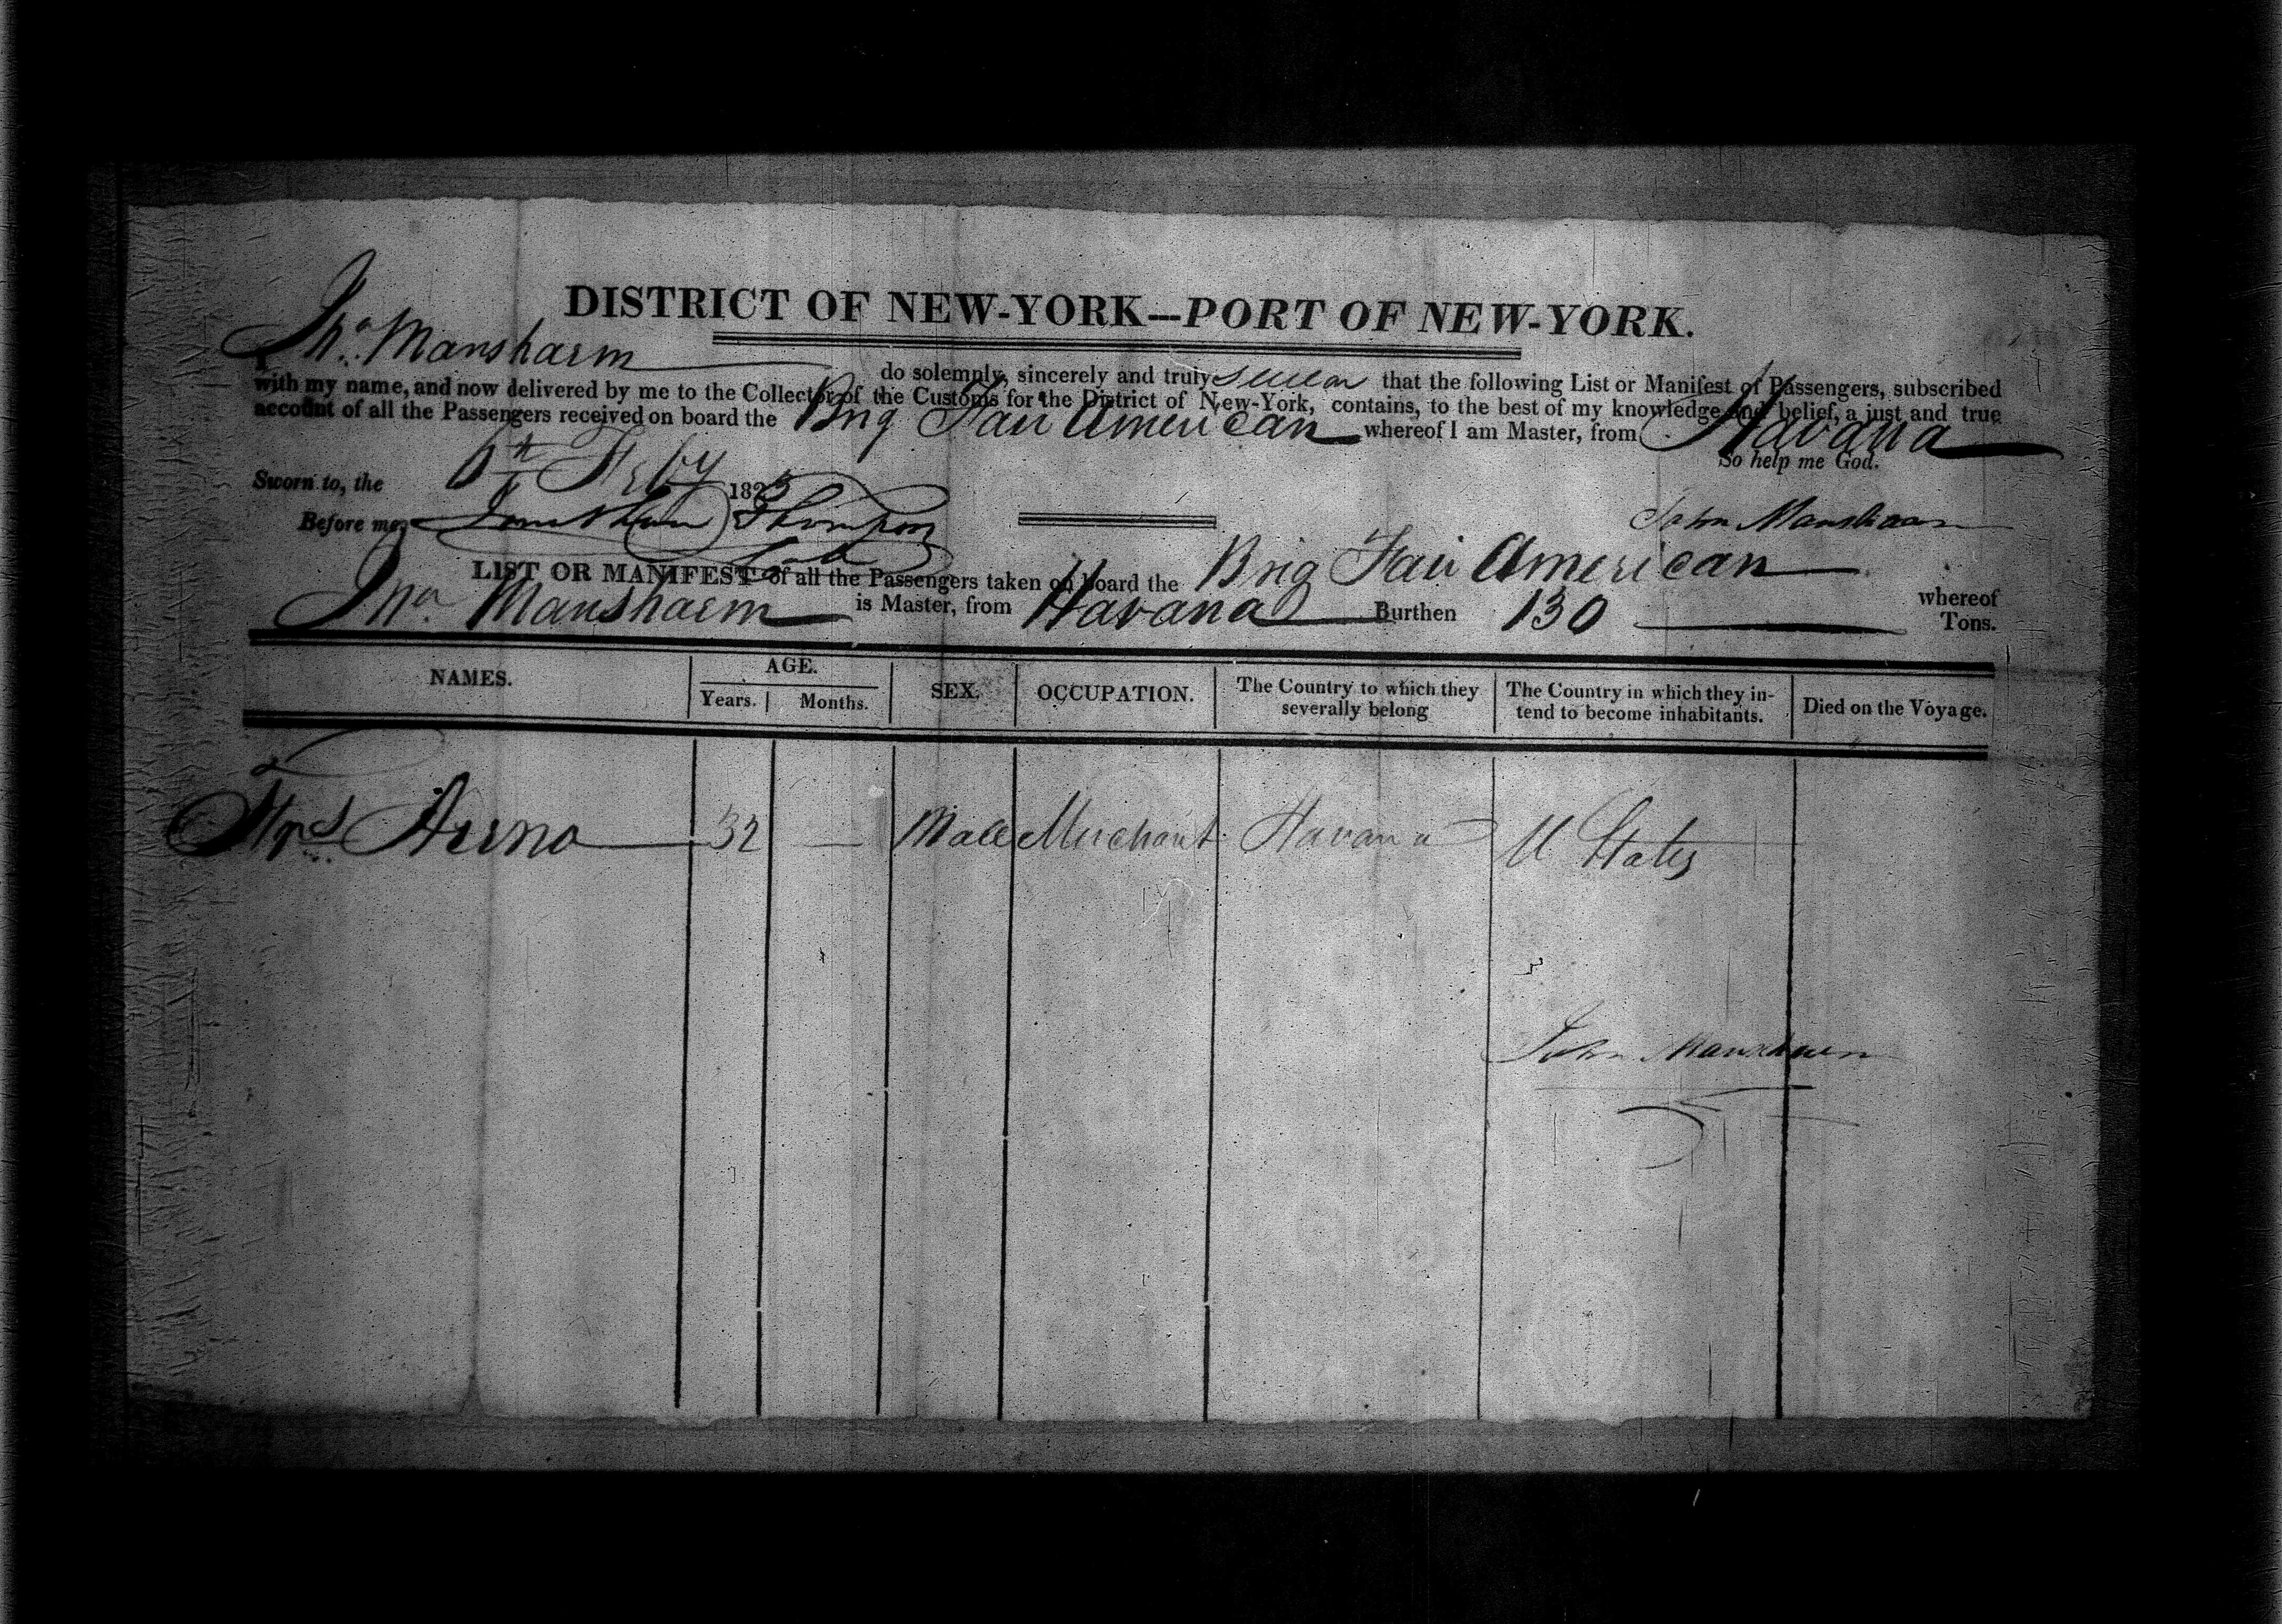 DISTRICT OF NEW-YORK—PORT OF NEW-YORK.
Jno. Mansharm do solemnly, sincerely and truly swear that the following List or Manifest of Passengers, subscribed
with my name, and now delivered by me to the Collector of the Customs for the District of New-York, contains, to the best of my knowledge and belief, a just and true
account of all the Passengers received on board the Brig Fair American whereof I am Master, from Havana
So help me God.
Sworn to, the 6th Feby 1823
Before me, Jonathan Thompson
John
LIST OR MANIFEST of all the Passengers taken on board the Brig Fair American whereof
Jno. Mansharm is Master, from Havana Burthen 130 Tons.
NAMES. AGE. SEX. OCCUPATION. The Country to which they severally belong The Country in which they in-tend to become inhabitants. Died on the Voyage.
Years. Months.
32 Male Merchant Havana U States
John